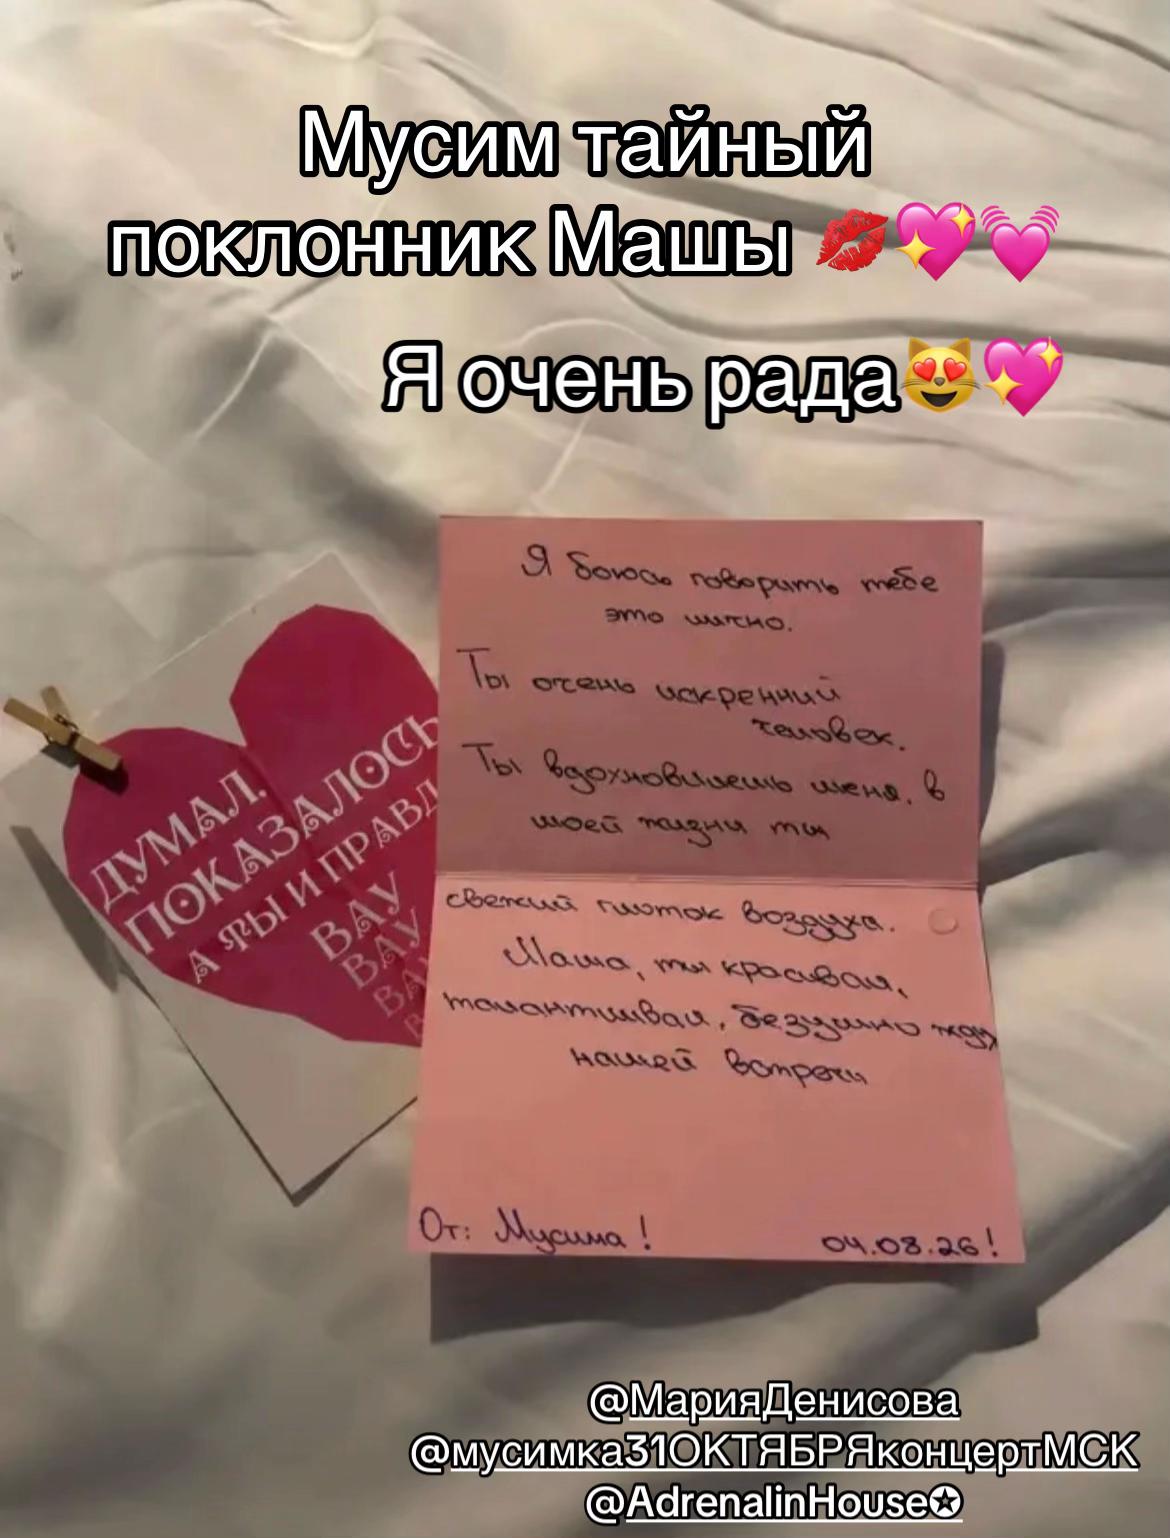 Мусим тайный
поклонник Машы 💋💖💓
Я очень рада😻💖
Я боюсь говорить тебе
это лично.
Ты очень искренний
человек.
Ты вдохновляешь меня, в
моей жизни ты
свежий глоток воздуха.
Маша, ты красивая,
талантливая, безумно жду
нашей встречи
От: Мусима!
04.08.26!
ДУМАЛ,
ПОКАЗАЛОСЬ
А ТЫ И ПРАВД
ВАУ
ВАУ
ВА
В
@МарияДенисова
@мусимка31ОКТЯБРЯконцертМСК
@AdrenalinHouse✪